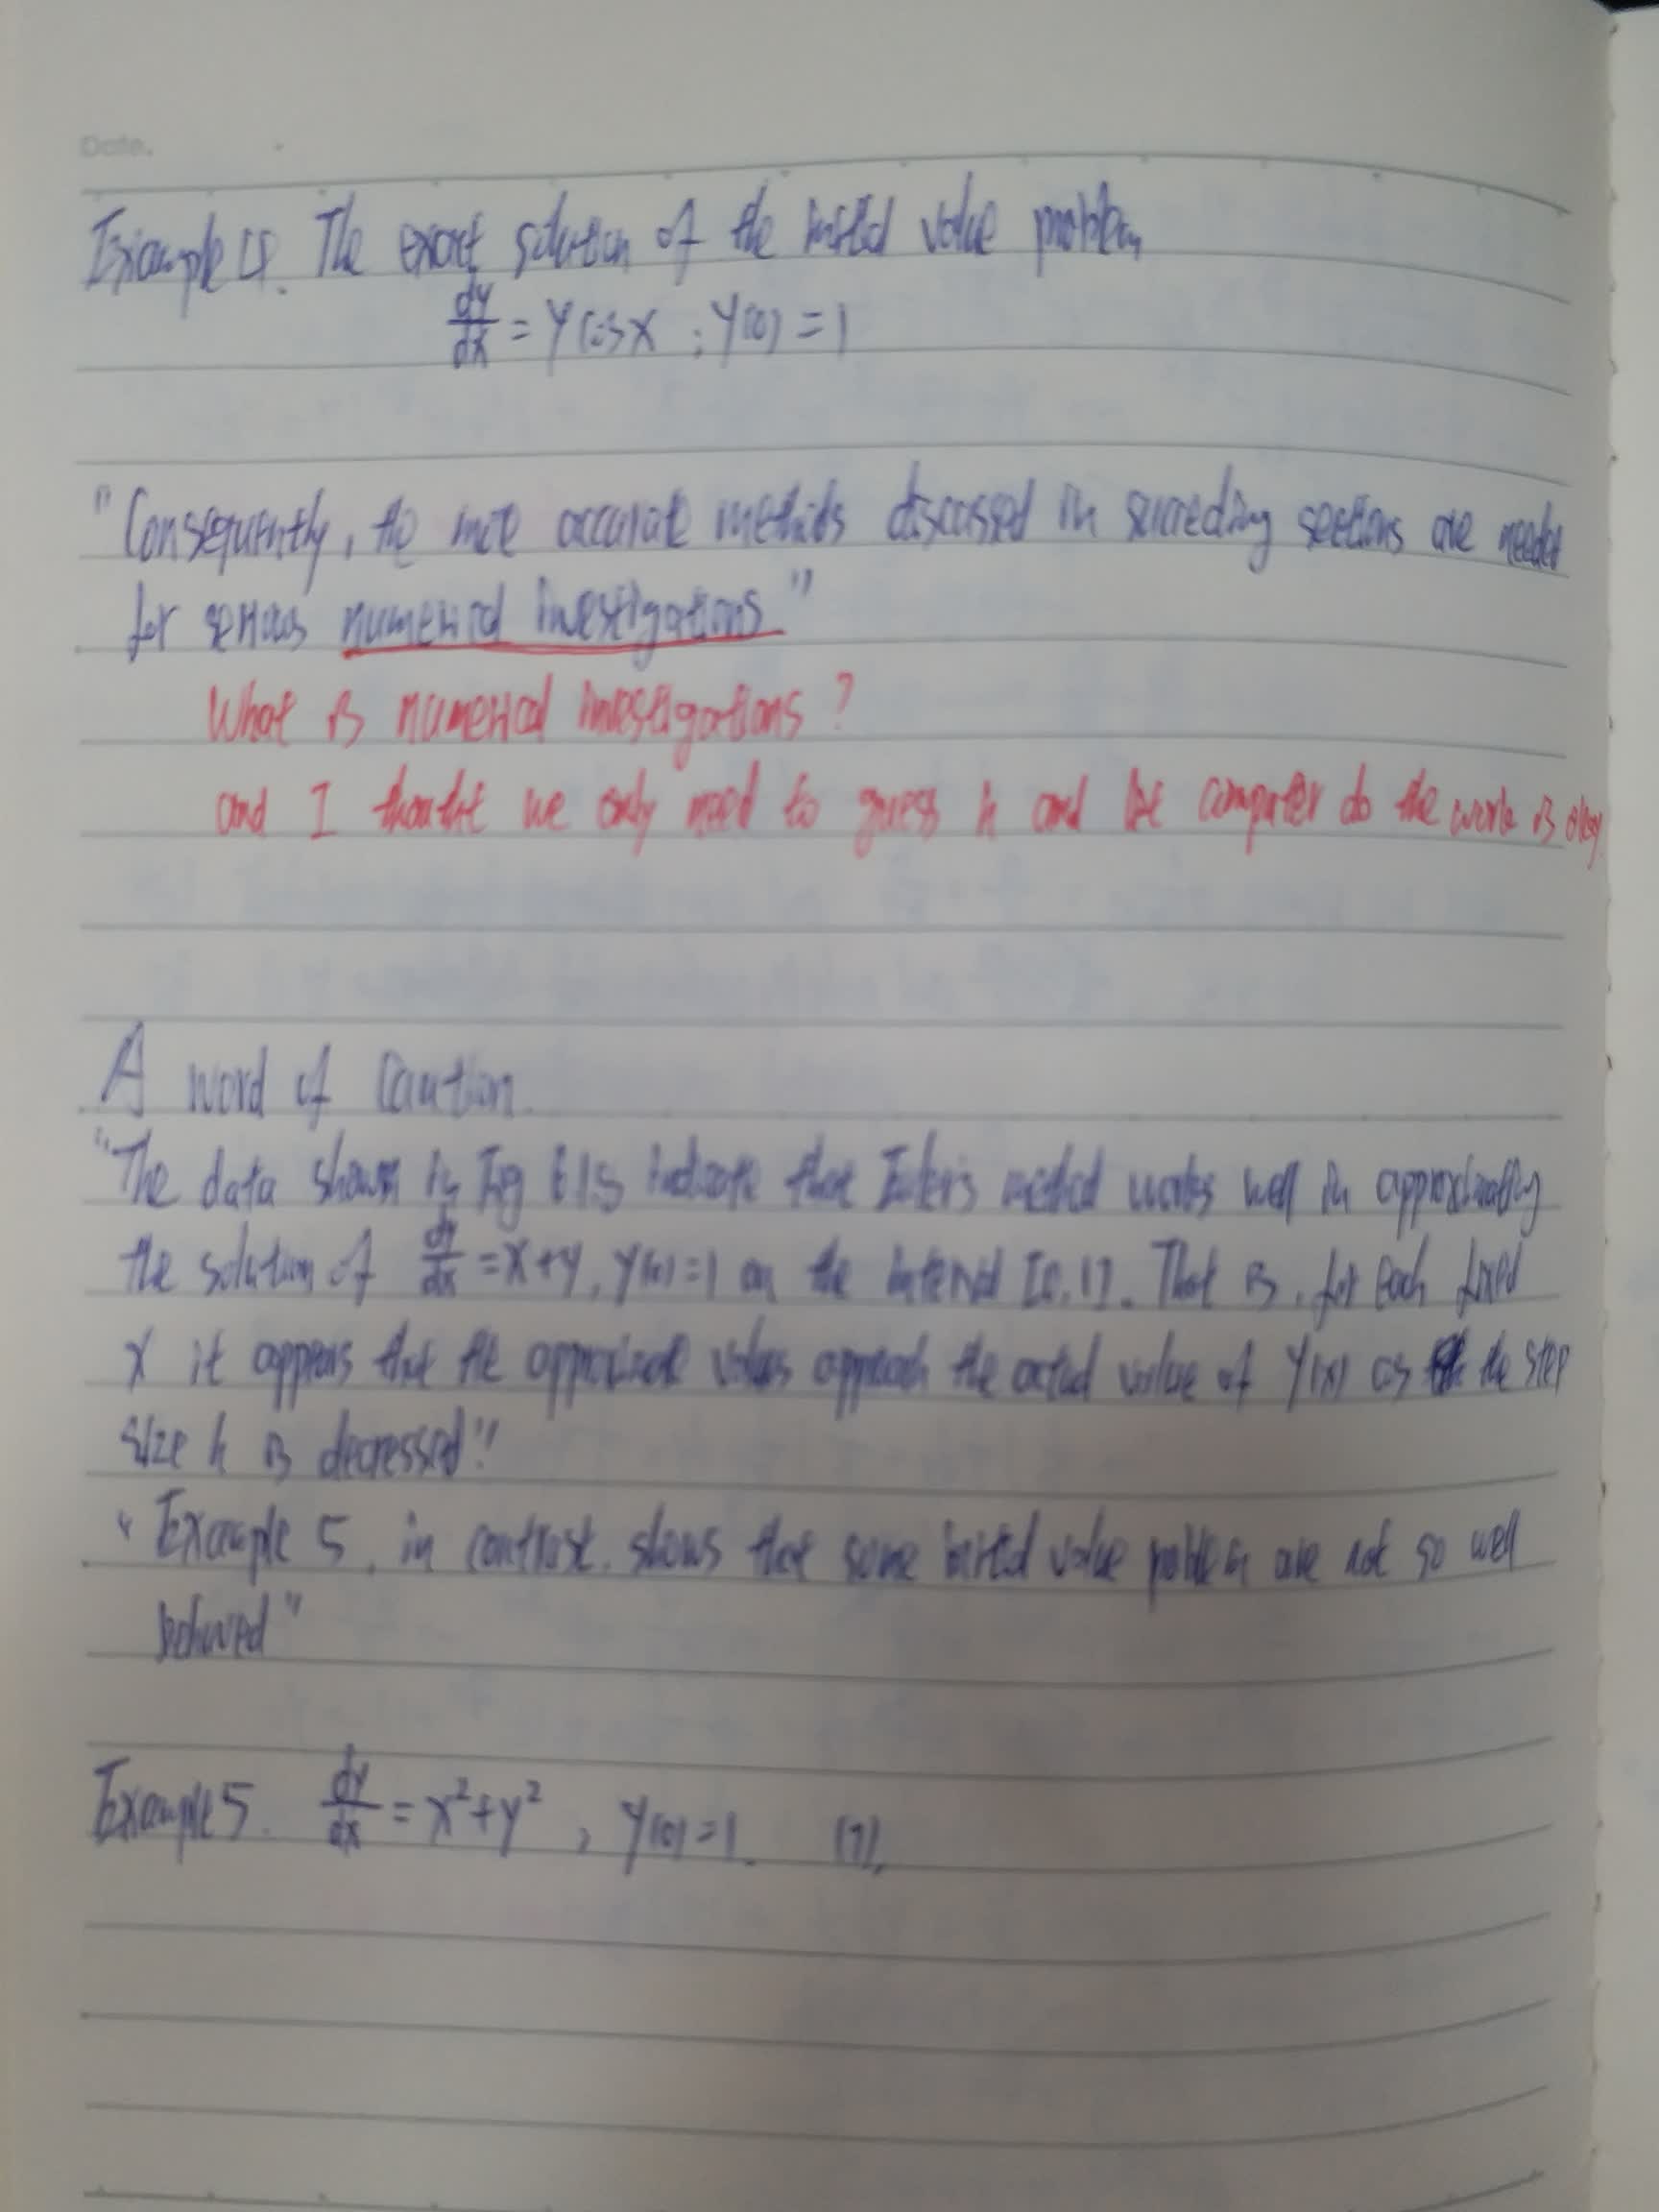 Date.
Example 4. The exact solution of the initial value problem
dy/dx = y cos x ; y(0) = 1
"Consequently, the more accurate methods discussed in succeeding sections are needed
for serious numerical investigations"
What is numerical investigations?
and I thought we only need to guess h and let computer do the work is okay.
A word of Caution.
"The data shown in Fig 6.1.5 indicate that Euler's method works well in approximating
the solution of dy/dx = x+y, y(0)=1 on the interval [0,1]. That is, for each fixed
x it appears that the approximate values approach the actual value of y(x) as the step
size h is decreased"
"Example 5, in contrast, shows that some initial value problem are not so well
behaved"
Example 5. dy/dx = x²+y², y(0)=1.